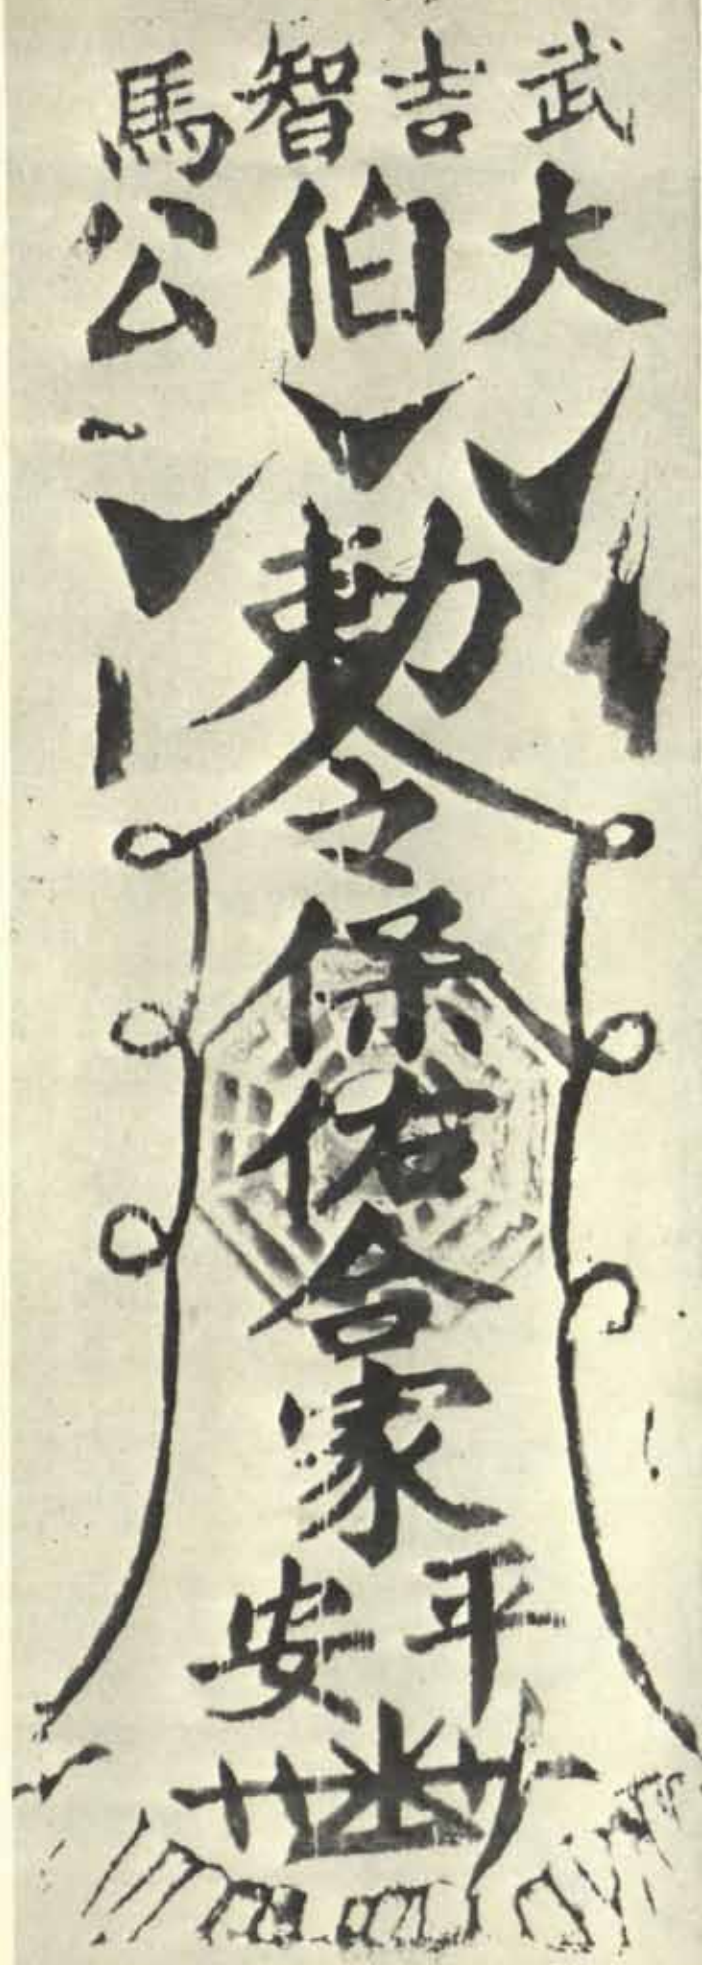 武吉智馬
大伯公
勅令保佑合家
平安